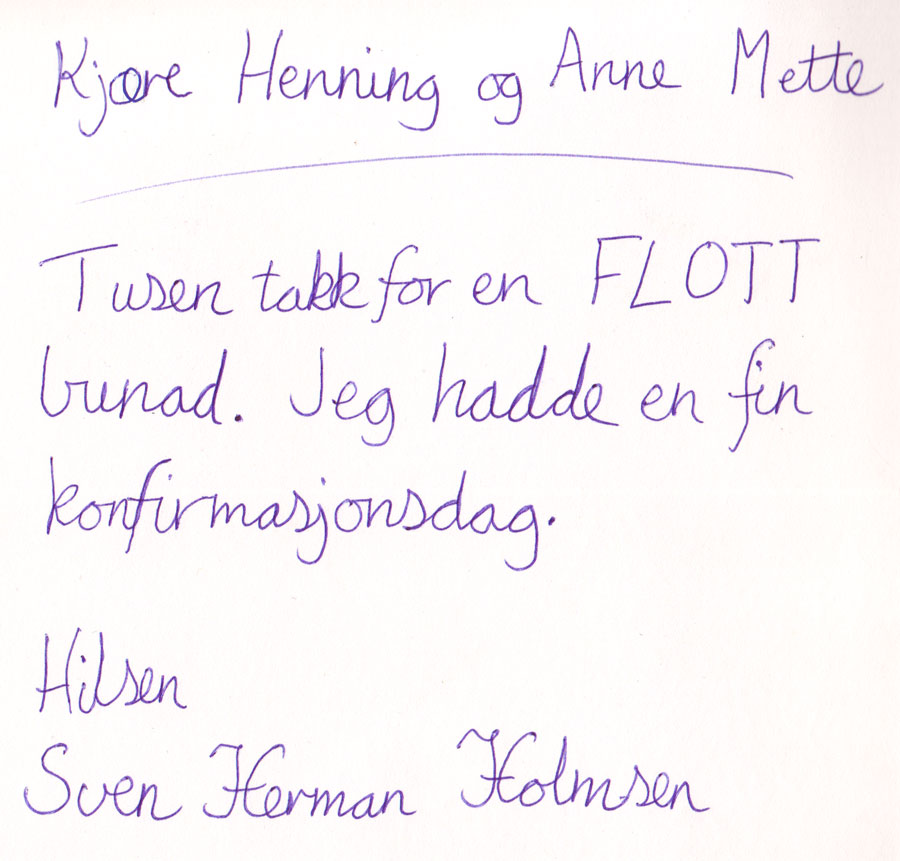 Kjære Henning og Anne Mette
Tusen takk for en FLOTT
bunad. Jeg hadde en fin
konfirmasjonsdag.
Hilsen
Sven Herman Holmsen